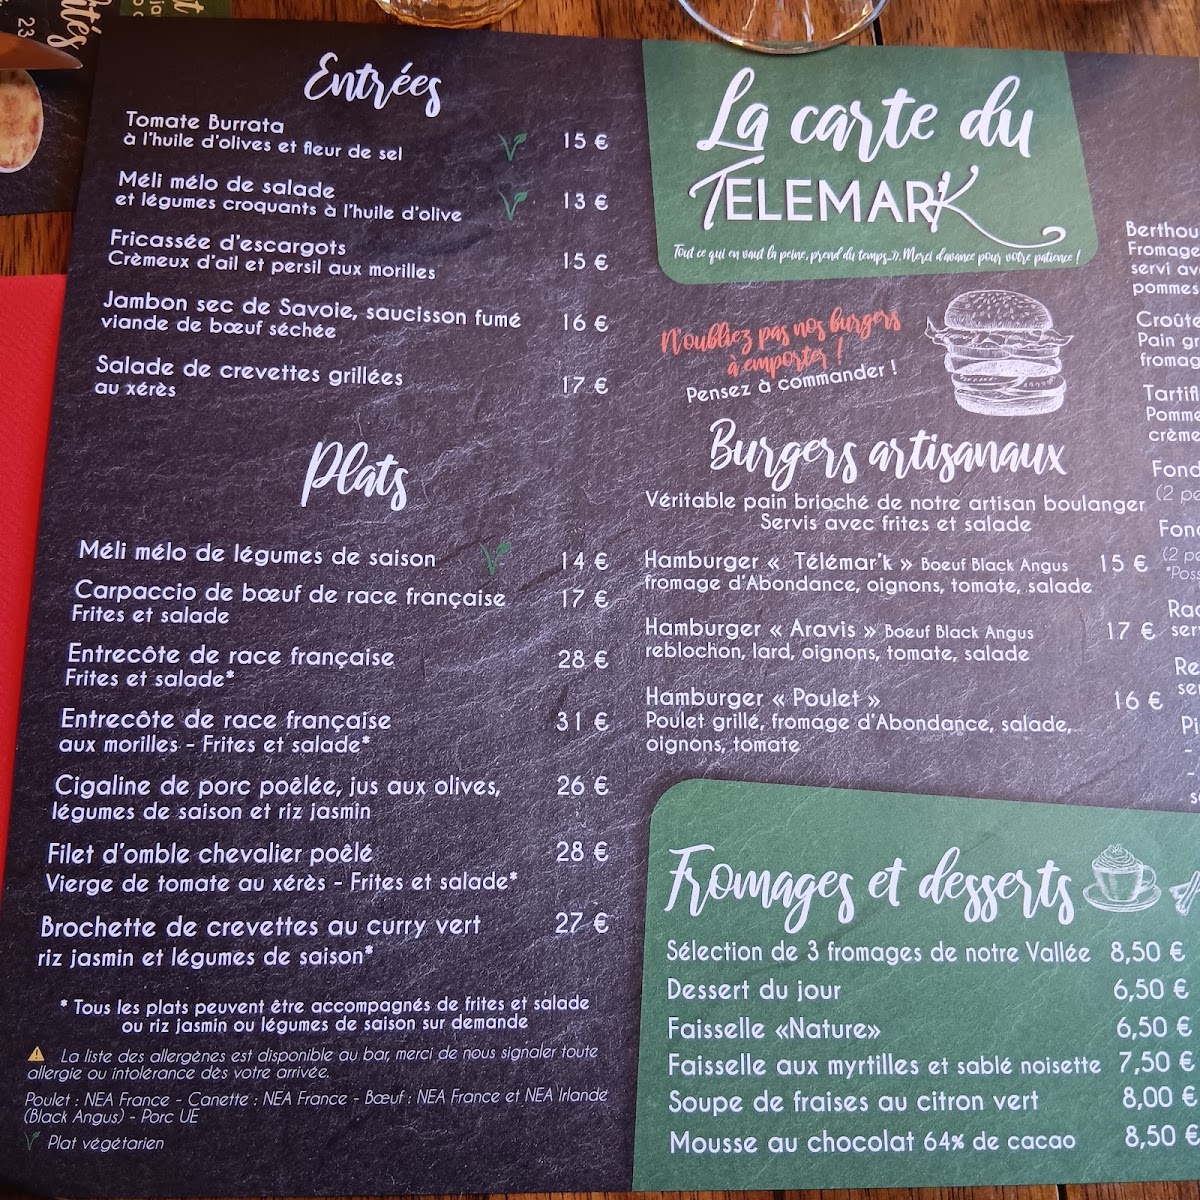 Entrées
Tomate Burrata
à l'huile d'olives et fleur de sel 15 €
Méli mélo de salade
et légumes croquants à l'huile d'olive 13 €
Fricassée d'escargots
Crèmeux d'ail et persil aux morilles 15 €
Jambon sec de Savoie, saucisson fumé
viande de bœuf séchée 16 €
Salade de crevettes grillées
au xérès 17 €
Plats
Méli mélo de légumes de saison 14 €
Carpaccio de bœuf de race française 17 €
Frites et salade
Entrecôte de race française 28 €
Frites et salade*
Entrecôte de race française 31 €
aux morilles - Frites et salade*
Cigaline de porc poêlée, jus aux olives, 26 €
légumes de saison et riz jasmin
Filet d'omble chevalier poêlé 28 €
Vierge de tomate au xérès - Frites et salade*
Brochette de crevettes au curry vert 27 €
riz jasmin et légumes de saison*
* Tous les plats peuvent être accompagnés de frites et salade
ou riz jasmin ou légumes de saison sur demande
La liste des allergènes est disponible au bar, merci de nous signaler toute
allergie ou intolérance dès votre arrivée.
Poulet : NEA France - Canette : NEA France - Bœuf : NEA France et NEA Irlande
(Black Angus) - Porc UE
Plat végétarien
La carte du
TELEMARK
Tout ce qui en vaut la peine, prend du temps...». Merci d'avance pour votre patience !
N'oubliez pas nos burgers
à emporter !
Pensez à commander !
Burgers artisanaux
Véritable pain brioché de notre artisan boulanger
Servis avec frites et salade
Hamburger « Télémar'k » Boeuf Black Angus 15 €
fromage d'Abondance, oignons, tomate, salade
Hamburger « Aravis » Boeuf Black Angus 17 €
reblochon, lard, oignons, tomate, salade
Hamburger « Poulet » 16 €
Poulet grillé, fromage d'Abondance, salade,
oignons, tomate
Fromages et desserts
Sélection de 3 fromages de notre Vallée 8,50 €
Dessert du jour 6,50 €
Faisselle «Nature» 6,50 €
Faisselle aux myrtilles et sablé noisette 7,50 €
Soupe de fraises au citron vert 8,00 €
Mousse au chocolat 64% de cacao 8,50 €
Berthou
Fromage
servi av
pommes
Croûte
Pain gr
fromag
Tartifl
Pomme
crème
Fond
(2 pe
Fond
(2 pe
*Poss
Rac
ser
Re
se
Pi
-
-
s